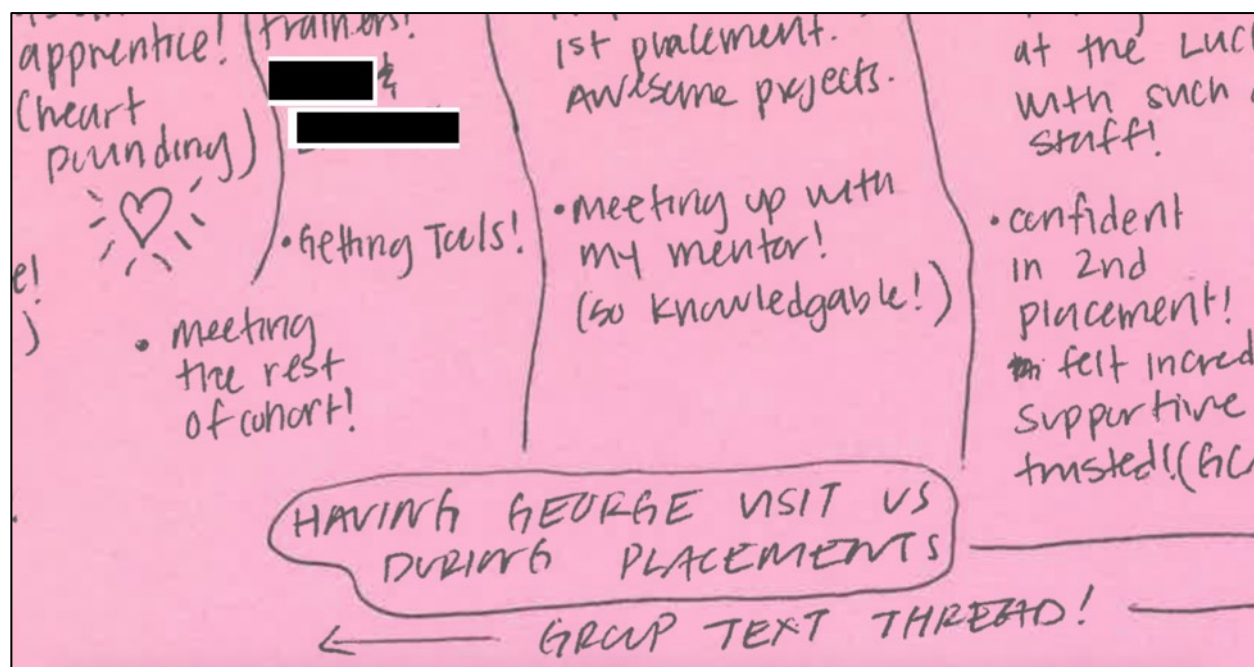 apprentice!
(heart
pounding)
e!
)
• meeting
the rest
of cohort!
trainers!
&
• Getting Tools!
1st placement.
Awesome projects.
• meeting up with
my mentor!
(so knowledgable!)
at the
with such
staff!
• confident
in 2nd
placement!
felt incred
supportive
trusted! (GC
HAVING GEORGE VISIT US
DURING PLACEMENTS
GROUP TEXT THREAD!